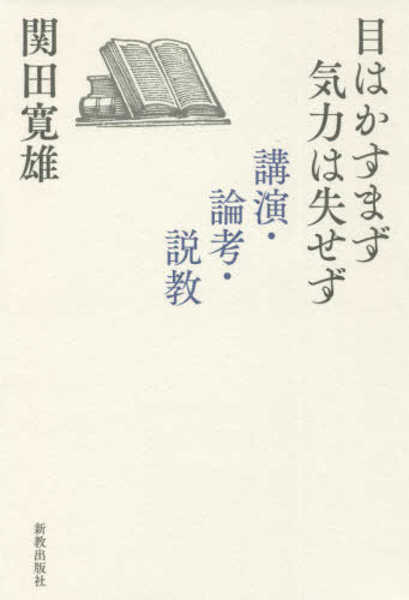 目はかすまず
気力は失せず
講演・
論考・
説教
関田寛雄
新教出版社